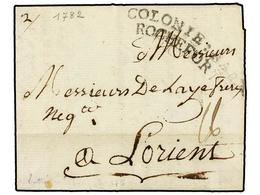 2 1782
COLONIES PAR
ROCHEFOR
Messieurs
Messieurs De Laye freres
Neg.ts
16
a Lorient